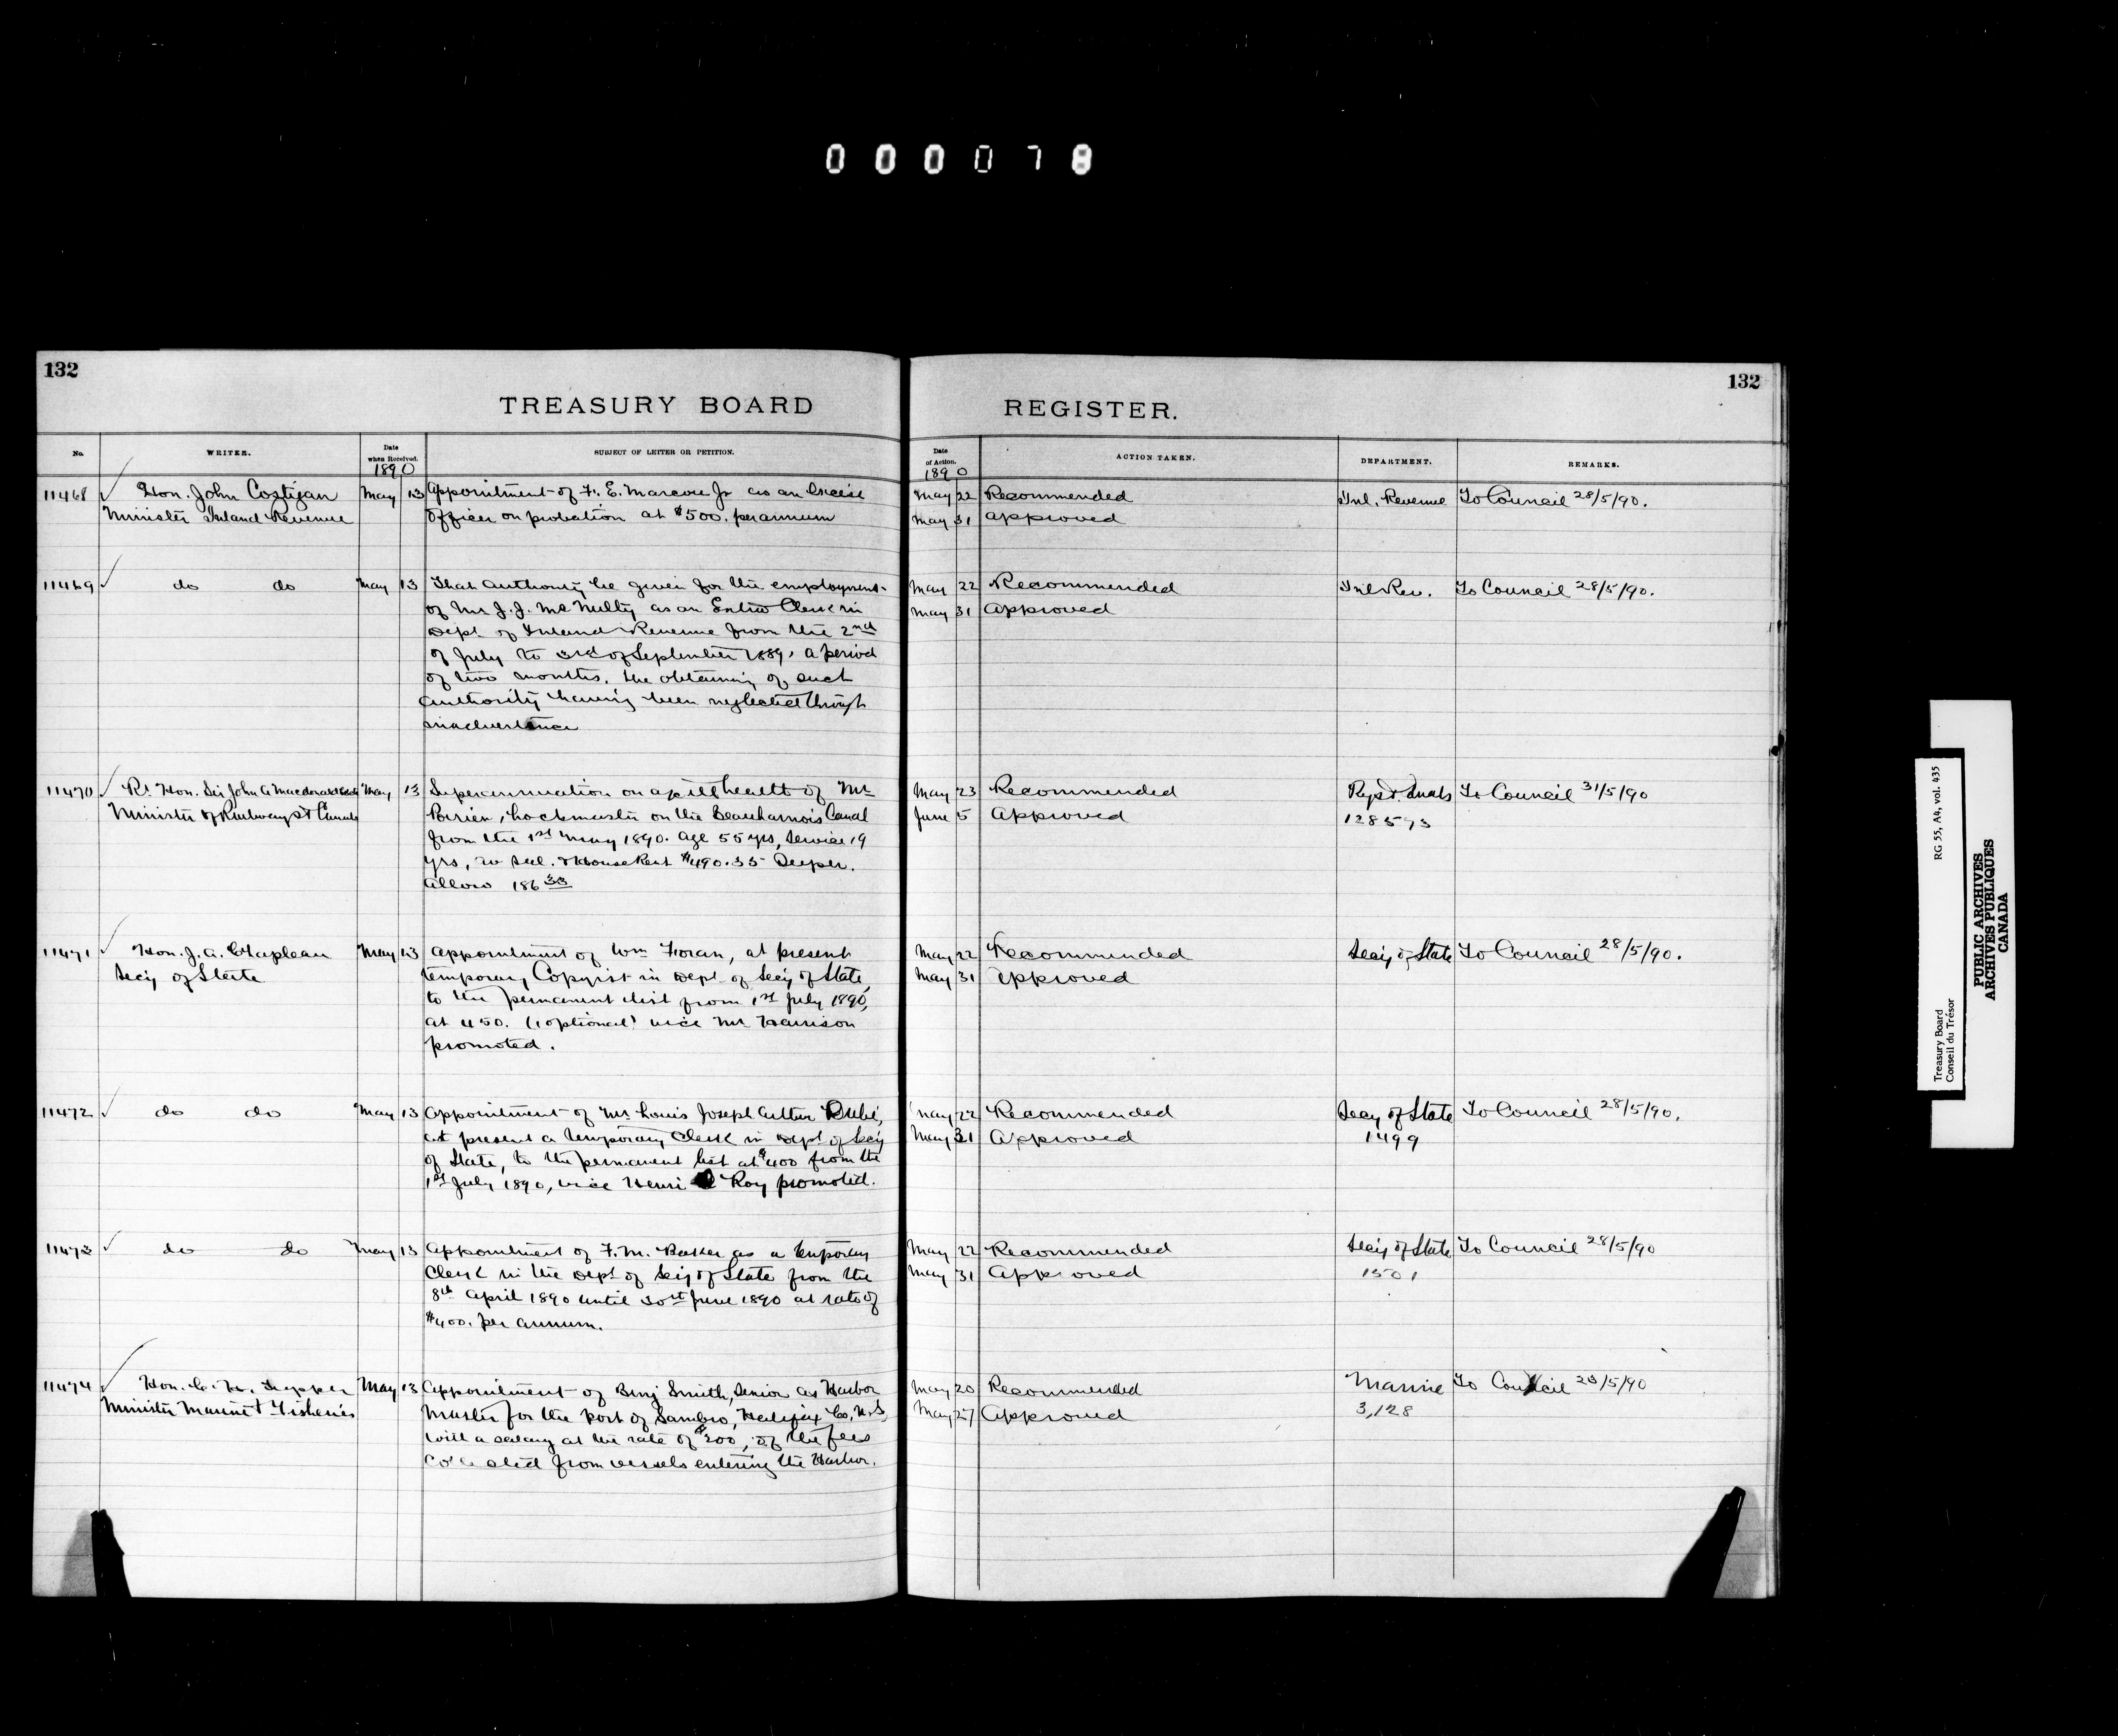 000078
132
TREASURY BOARD
No.
WRITER.
Date
when Received.
1890
SUBJECT OF LETTER OR PETITION.
11468 Hon. John Costigan May 13 Appointment of F. E. Marcou Jr as an Excise
Minister Inland Revenue officer on probation at $500. per annum
11469 do do May 13 That authority be given for the employment
of Mr J. J. McNulty as an Extra Clerk in
Dept of Inland Revenue from the 2nd
of July to 3rd of September 1889, a period
of two months, the obtaining of such
authority having been neglected through
inadvertence
11470 Rt. Hon. Sir John A Macdonald May 13 Superannuation on a/c ill health of Mr
Minister of Railways & Canals Poirier, Lockmaster on the Beauharnois Canal
from the 1st May 1890. Age 55 yrs, Service 19
yrs, av Sal. & House Rent $490.35 Super.
allow 186 33
11471 Hon. J. A. Chapleau May 13 Appointment of Wm Foran, at present
Secy of State temporary Copyist in Dept of Secy of State,
to the permanent list from 1st July 1890,
at 450. (1 optional) vice Mr Harrison
promoted.
11472 do do May 13 Appointment of Mr Louis Joseph Arthur Dubé,
at present a temporary Clerk in Dept of Secy
of State, to the permanent list at $400 from the
1st July 1890, vice Henri Roy promoted.
11473 do do May 13 Appointment of F. M. as a temporary
Clerk in the Dept of Secy of State from the
8th April 1890 until 30st June 1890 at rate of
$400. per annum.
11474 Hon. C. H. Tupper May 13 Appointment of Benj Smith, Senior as Harbor
Minister Marine & Fisheries Master for the port of Sambro, Halifax Co, N.S,
with a salary at the rate of $200, of the fees
collected from vessels entering the Harbor.
132
REGISTER.
Date
of Action.
1890
ACTION TAKEN.
DEPARTMENT.
REMARKS.
May 22 Recommended Inl. Revenue To Council 28/5/90.
May 31 approved
May 22 Recommended Inl Rev. To Council 28/5/90.
May 31 Approved
May 23 Recommended To Council 31/5/90
June 5 Approved 128593
May 22 Recommended Secy of State To Council 28/5/90.
May 31 Approved
May 22 Recommended Secy of State To Council 28/5/90.
May 31 Approved 1499
May 22 Recommended Secy of State To Council 28/5/90
May 31 Approved 1501
May 20 Recommended Marine To Council 23/5/90
May 27 Approved 3,128
Treasury Board
Conseil du Trésor
RG 55, A4, vol. 435
PUBLIC ARCHIVES
ARCHIVES PUBLIQUES
CANADA